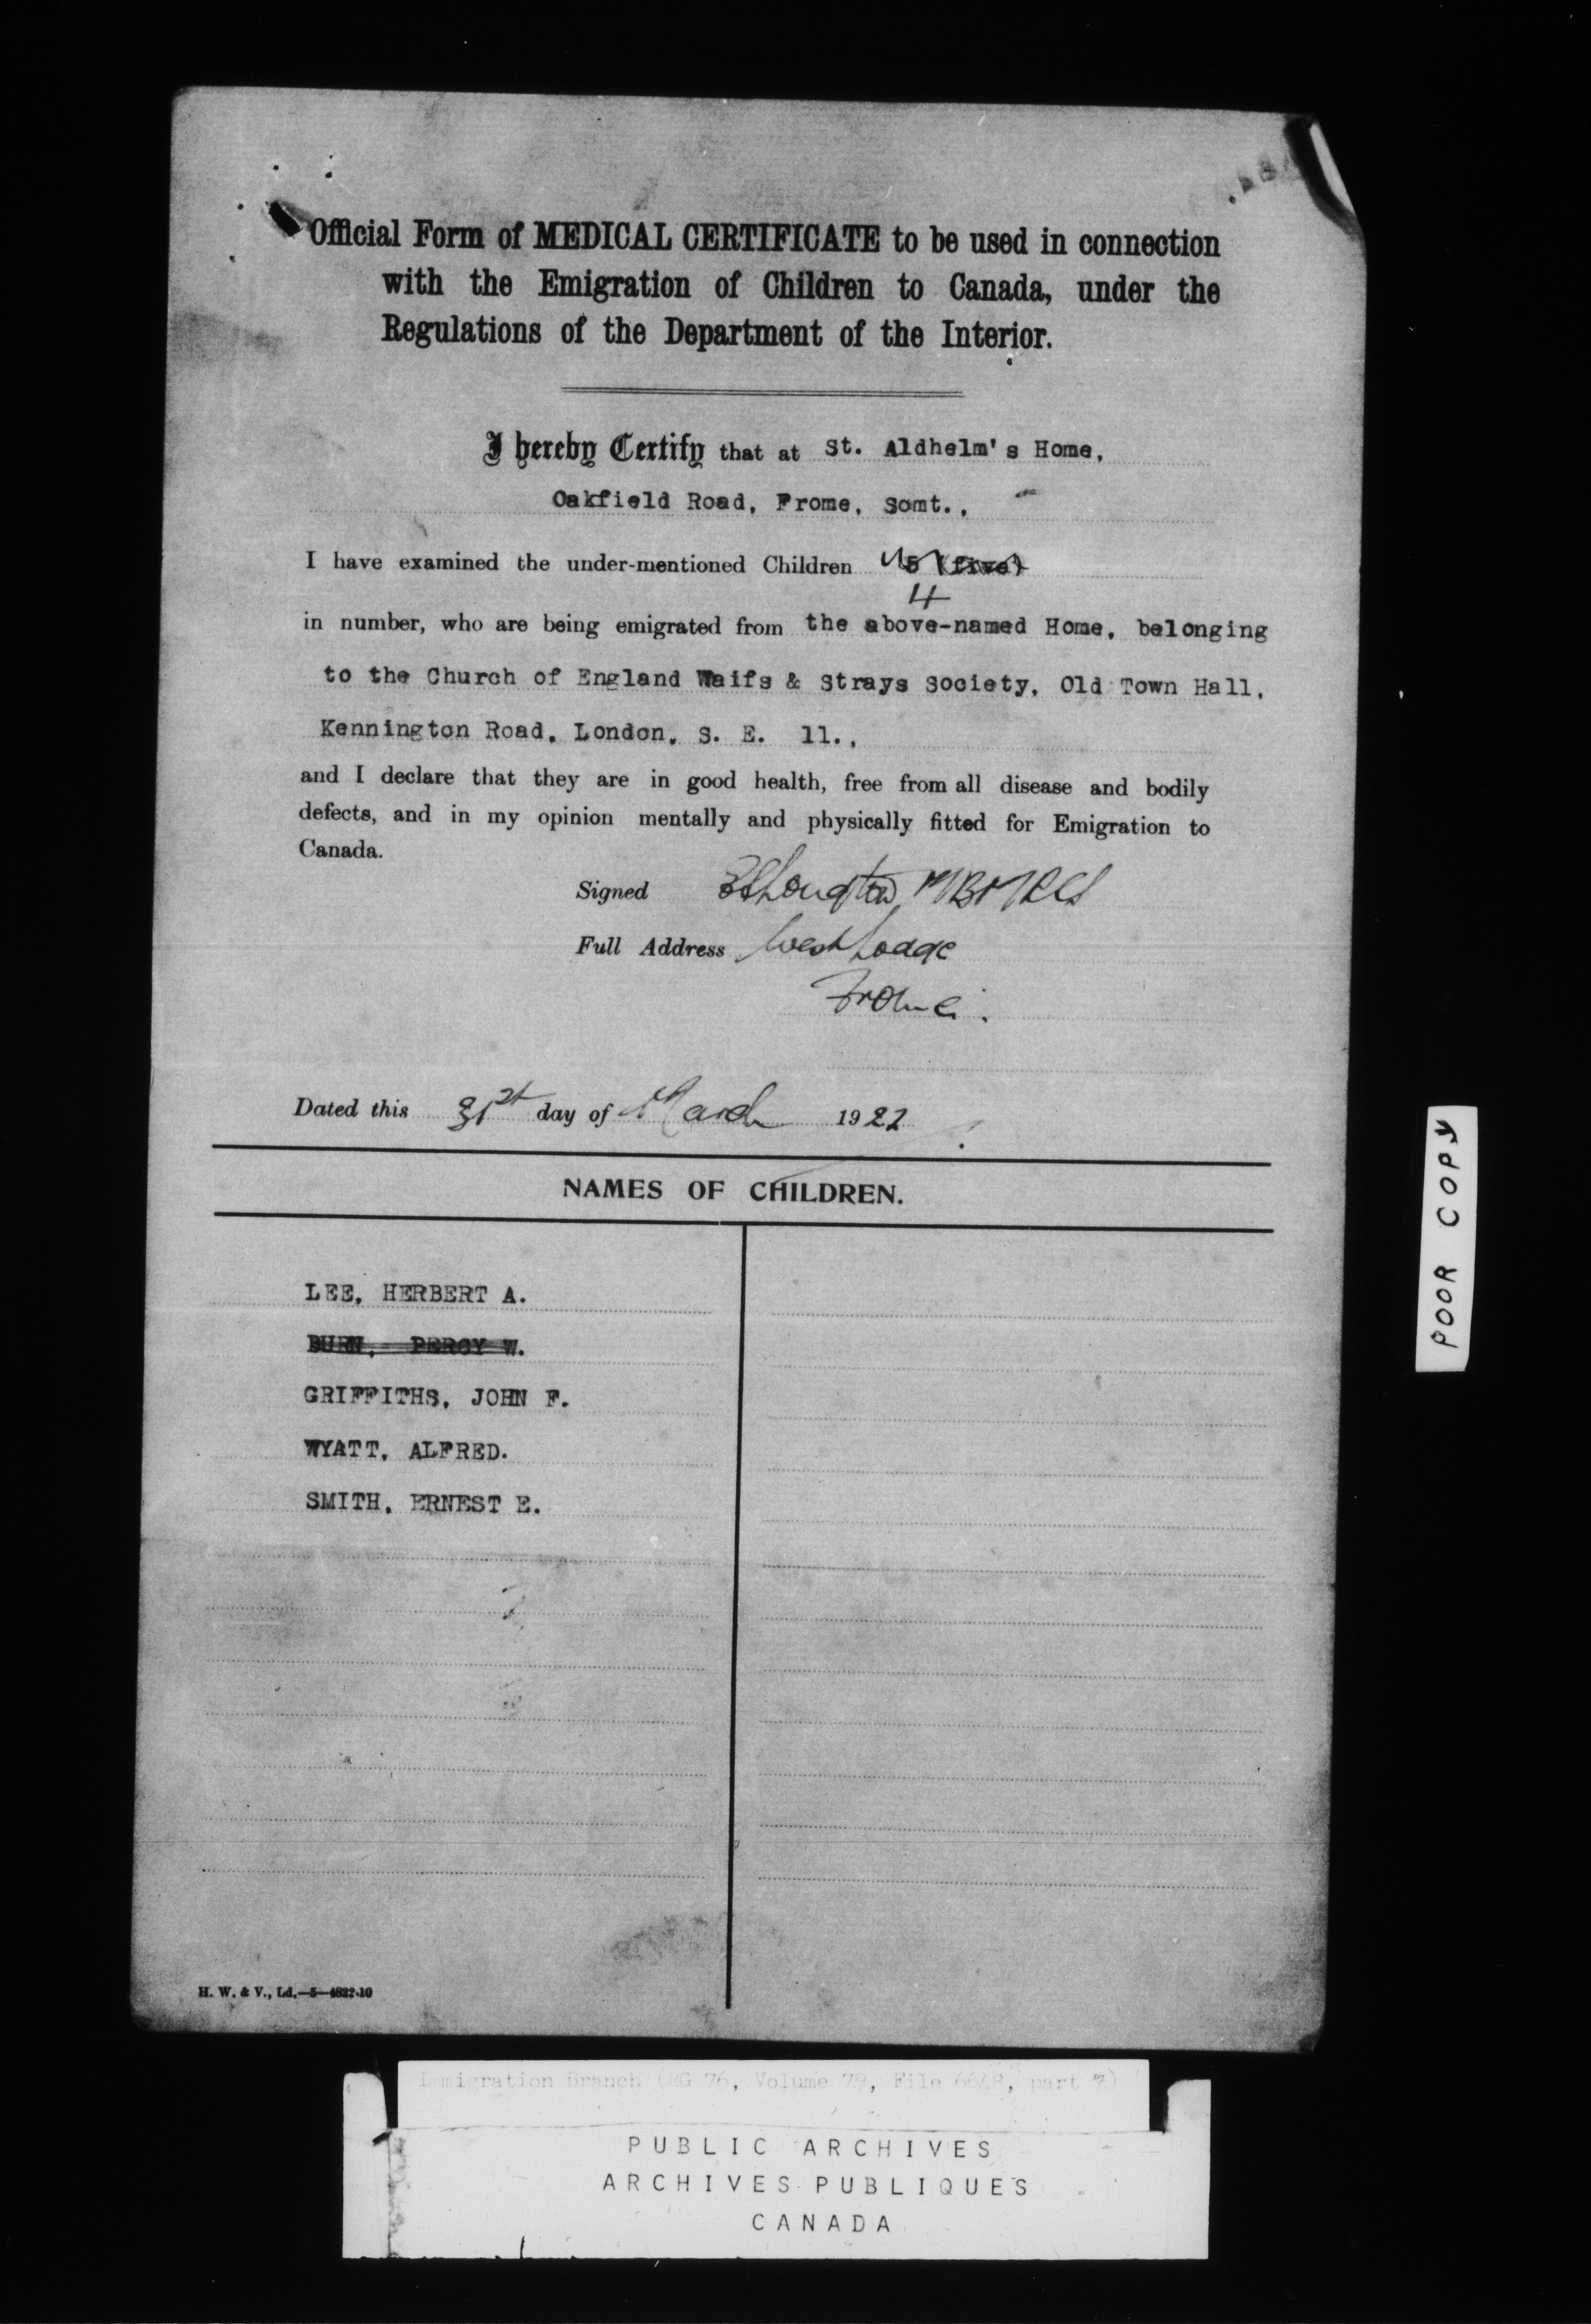 Official Form of MEDICAL CERTIFICATE to be used in connection
with the Emigration of Children to Canada, under the
Regulations of the Department of the Interior.
I hereby Certify that at St. Aldhelm's Home,
Oakfield Road, Frome, Somt.,
I have examined the under-mentioned Children 5 (five)
4
in number, who are being emigrated from the above-named Home, belonging
to the Church of England Waifs & Strays Society, Old Town Hall,
Kennington Road, London, S. E. 11.,
and I declare that they are in good health, free from all disease and bodily
defects, and in my opinion mentally and physically fitted for Emigration to
Canada.
Signed
Full Address West Lodge
Frome.
Dated this 31st day of March 1922
NAMES OF CHILDREN.
LEE, HERBERT A.
BURN, PERCY W.
GRIFFITHS, JOHN F.
WYATT, ALFRED.
SMITH, ERNEST E.
H. W. & V., Ld.—5—4822-10
POOR COPY
Immigration Branch (RG 76, Volume 79, File 6648, part 7)
PUBLIC ARCHIVES
ARCHIVES PUBLIQUES
CANADA